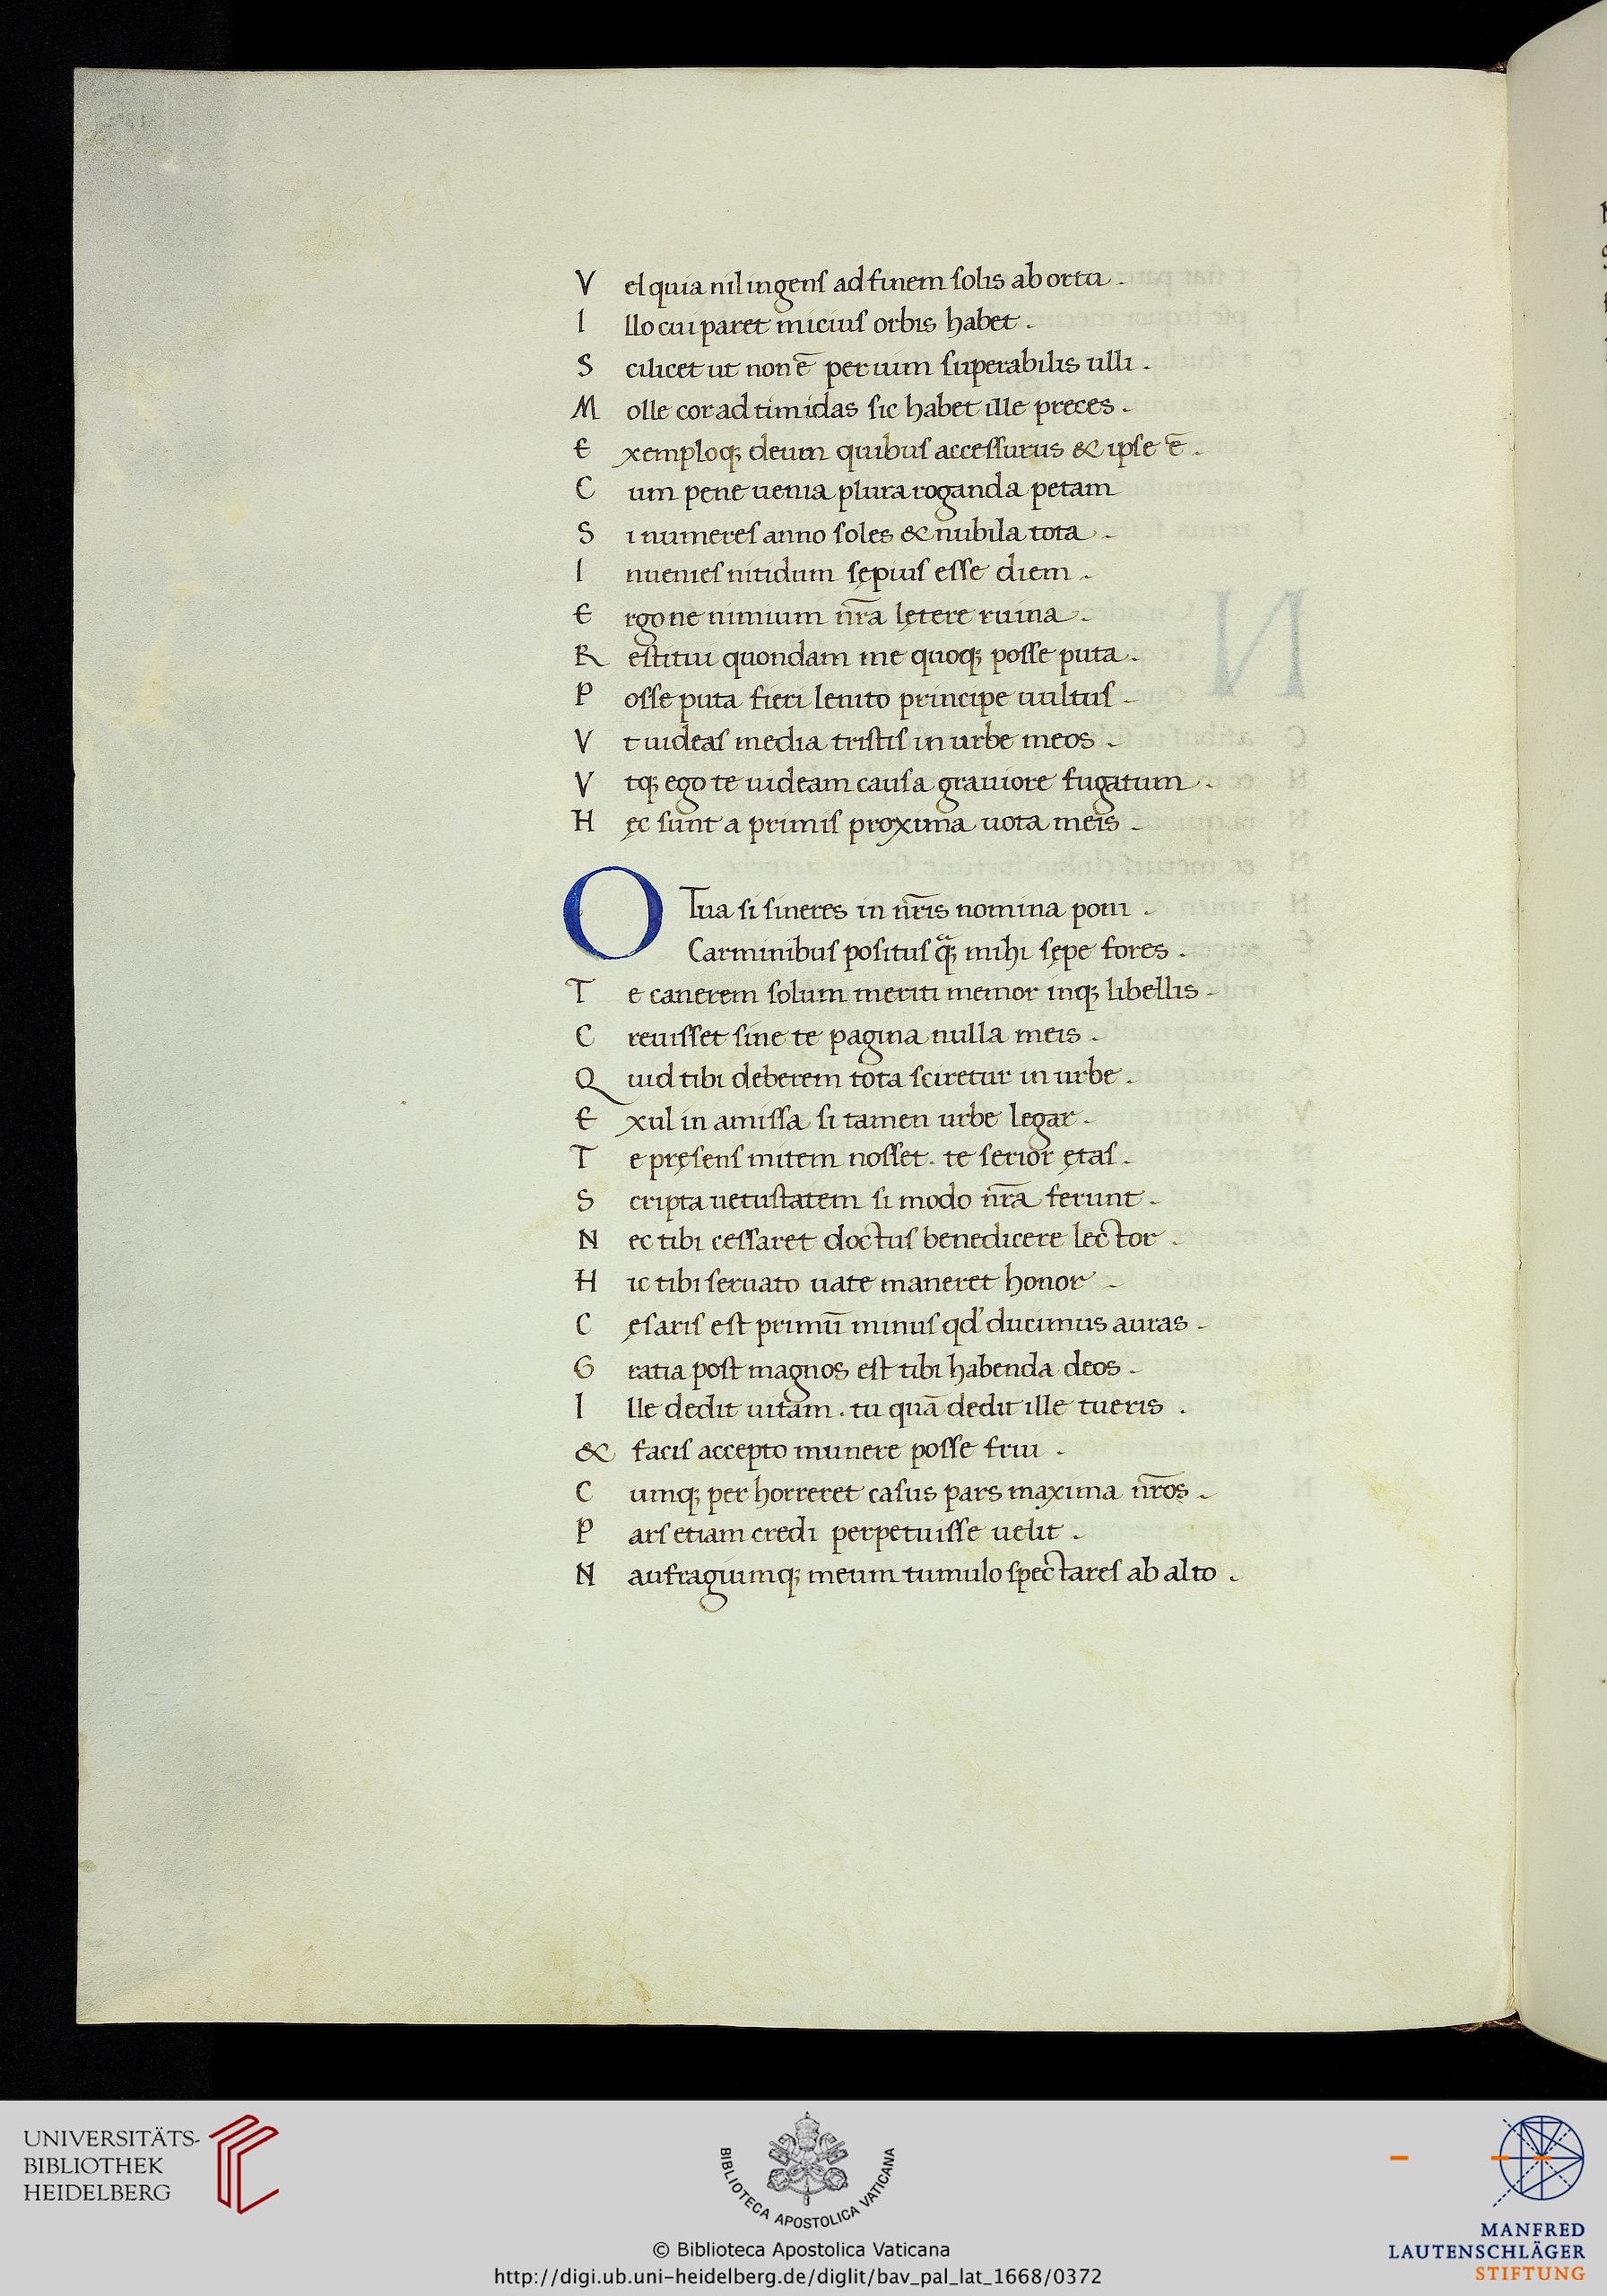 Vel quia nil ingens ad finem solis ab ortu.
Illo cui paret micius orbis habet.
Scilicet ut non ē per uim superabilis ulli.
Molle cor ad timidas sic habet ille preces.
Exemploq; deum quibus accessurus & ipse ē.
Cum pene uenia plura roganda petam
Si numeres anno soles & nubila tota.
Inuenies nitidum sępius esse diem.
Ergo ne nimium nr̄a lętere ruina.
Restitui quondam me quoq; posse puta.
Posse puta fieri lenito principe uultus.
Vt uideas media tristis in urbe meos.
Vtq; ego te uideam causa grauiore fugatum.
Hęc sunt a primis proxima uota meis.
O Tua si sineres in nr̄is nomina poni.
Carminibus positus q; mihi sępe fores.
Te canerem solum meriti memor inq; libellis.
Creuisset sine te pagina nulla meis.
Quid tibi deberem tota sciretur in urbe.
Exul in amissa si tamen urbe legar.
Te pręsens mitem nosset. te serior ętas.
Scripta uetustatem si modo nr̄a ferunt.
Nec tibi cessaret doctus benedicere lector.
Hic tibi seruato uate maneret honor.
Cęsaris est primū minus qd' ducimus auras.
Gratia post magnos est tibi habenda deos.
Ille dedit uitam. tu quā dedit ille tueris.
& facis accepto munere posse frui.
Cumq; per horreret casus pars maxima nr̄os.
Pars etiam credi perpetuisse uelit.
Naufragiumq; meum tumulo spectares ab alto.
UNIVERSITÄTS-
BIBLIOTHEK
HEIDELBERG
BIBLIOTECA APOSTOLICA VATICANA
© Biblioteca Apostolica Vaticana
http://digi.ub.uni-heidelberg.de/diglit/bav_pal_lat_1668/0372
MANFRED
LAUTENSCHLÄGER
STIFTUNG